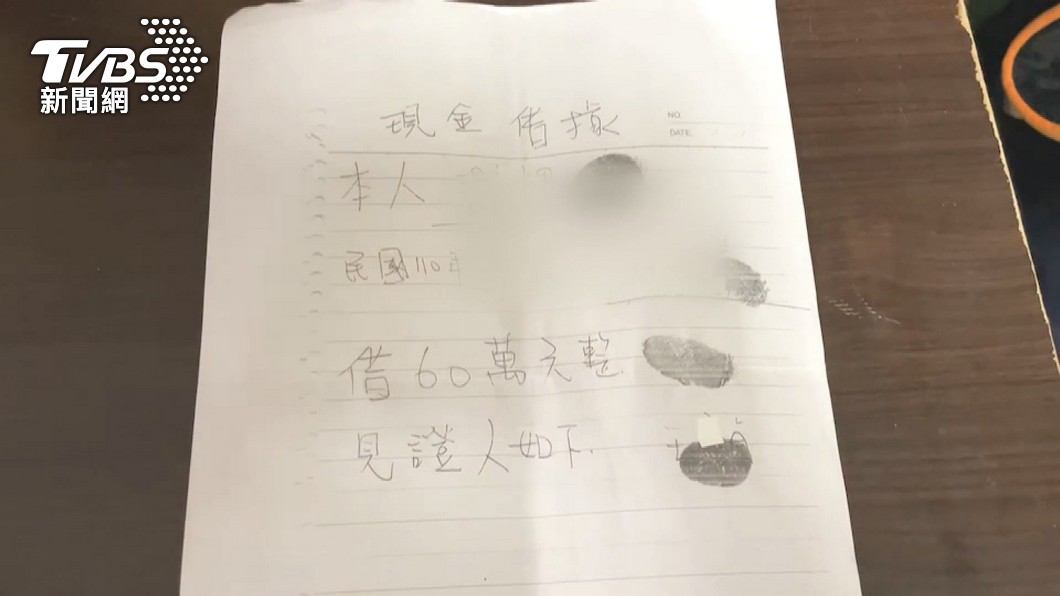 TVBS
新聞網
現金借據
NO.
DATE
本人
民國110年
借60萬元整
見證人如下.